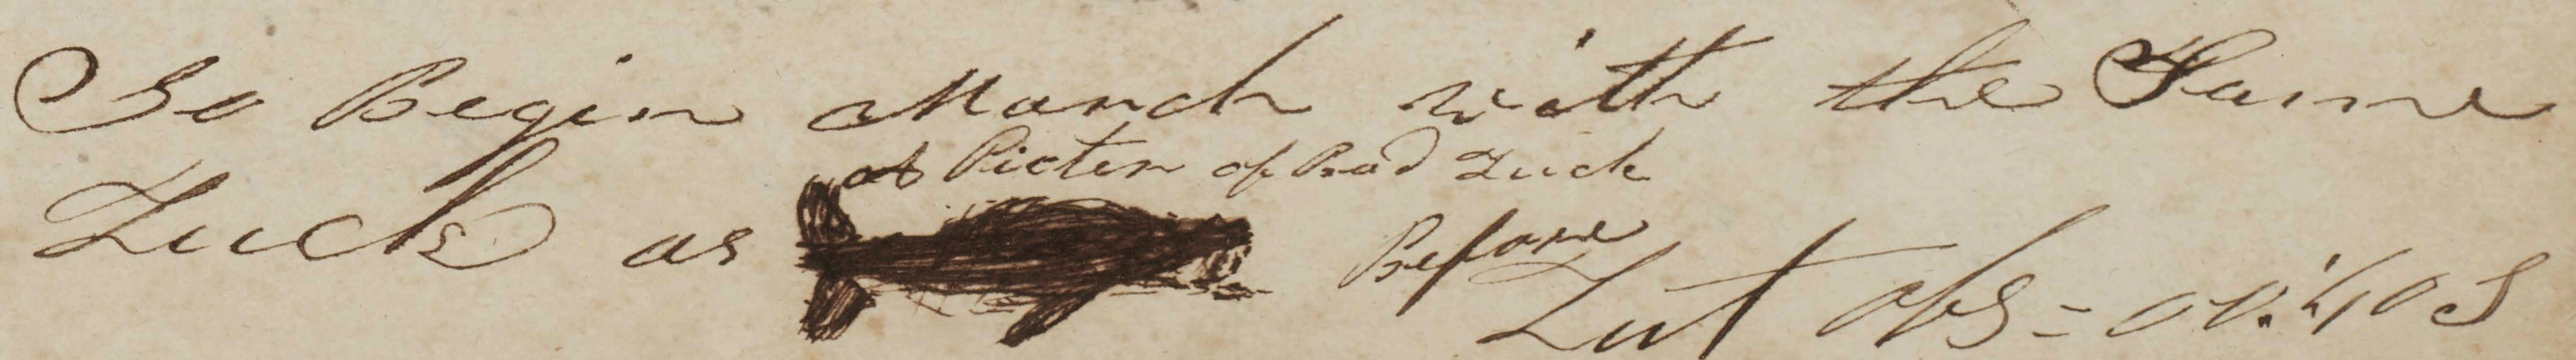 So Begin March with the Same
a Picter of Bad Luck
Luck as Before
Lat obs = 01:40 S